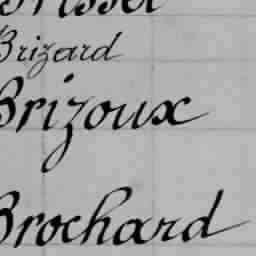 Brizard
Brizoux
Brochard